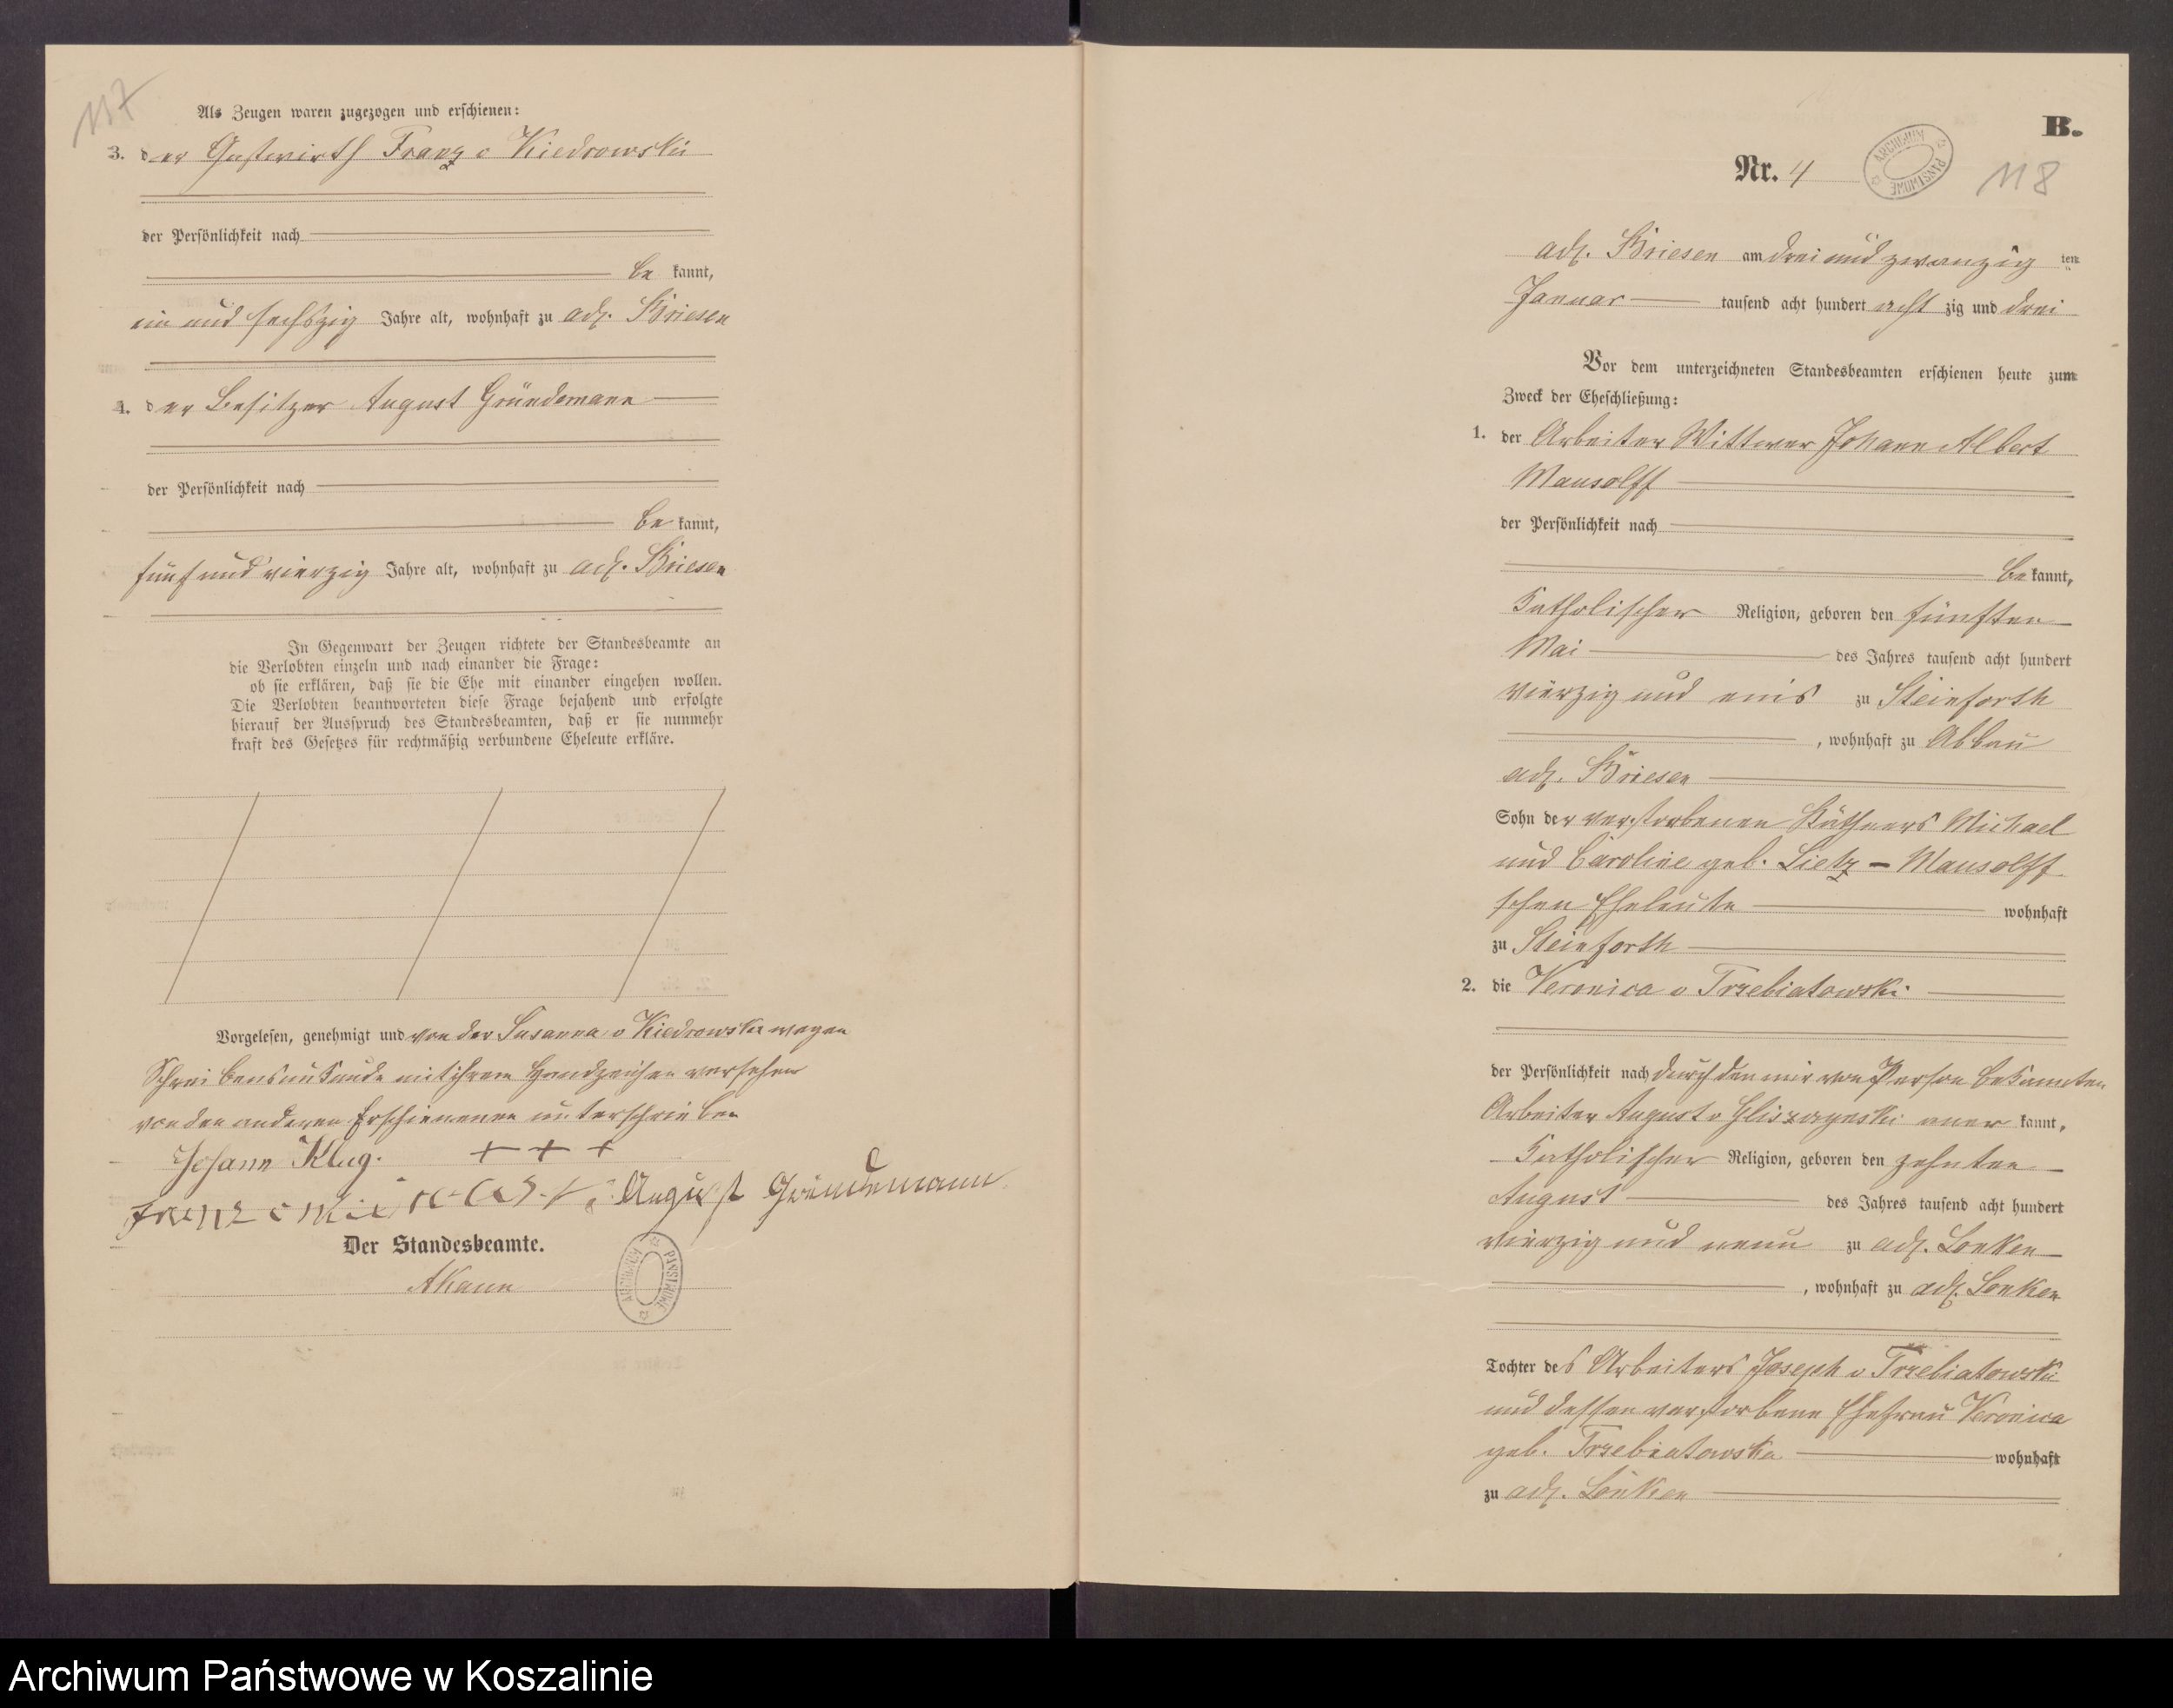 117
Als Zeugen waren zugezogen und erschienen:
3. der Gastwirth Franz v Kiedrowski
der Persönlichkeit nach
be kannt,
ein und sechszig Jahre alt, wohnhaft zu adl. Briesen
4. der Besitzer August Gründemann
der Persönlichkeit nach
be kannt,
fünf und vierzig Jahre alt, wohnhaft zu adl. Briesen
In Gegenwart der Zeugen richtete der Standesbeamte an
die Verlobten einzeln und nach einander die Frage:
ob sie erklären, daß sie die Ehe mit einander eingehen wollen.
Die Verlobten beantworteten diese Frage bejahend und erfolgte
hierauf der Ausspruch des Standesbeamten, daß er sie nunmehr
kraft des Gesetzes für rechtmäßig verbundene Eheleute erkläre.
Vorgelesen, genehmigt und von der Susanna v Kiedrowska wegen
Schreibensunkunde mit ihrem Handzeichen versehen
von den anderen Erschienenen unterschrieben
Johann Klug. + + +
Franz v August Gründemann
Der Standesbeamte.
AKann
ARCHIWUM PAŃSTWOWE
B.
Nr. 4
ARCHIWUM PAŃSTWOWE
118
adl. Briesen am drei und zwanzig ten
Januar tausend acht hundert acht zig und drei
Vor dem unterzeichneten Standesbeamten erschienen heute zum
Zweck der Eheschließung:
1. der Arbeiter Wittwer Johann Albert
Mausolff
der Persönlichkeit nach
be kannt,
katholischer Religion, geboren den fünften
Mai des Jahres tausend acht hundert
vierzig und eins zu Steinforth
, wohnhaft zu Abbau
adl. Briesen
Sohn der verstorbenen Käthners Michael
und Caroline geb. Lietz - Mausolff
schen Eheleute wohnhaft
zu Steinforth
2. die Veronica v Trzebiatowski
der Persönlichkeit nach durch den mir von Person bekannten
Arbeiter August v aner kannt,
katholischer Religion, geboren den zehnten
August des Jahres tausend acht hundert
vierzig und neun zu adl. Lonken
, wohnhaft zu adl. Lonken
Tochter des Arbeiters Joseph v Trzebiatowski
und dessen verstorbene Ehefrau Veronica
geb. Trzebiatowska wohnhaft
zu adl. Lonken
Archiwum Państwowe w Koszalinie